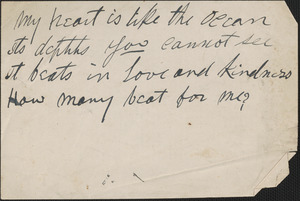 My heart is like the ocean
its depths you cannot see
it beats in love and kindness
How many beat for me?